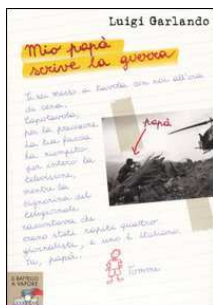 Luigi Garlando
Mio papà
scrive la guerra
Ti sei messo a tavola con noi all'ora
di cena.
Capotavola,
per la precisione.
La tua faccia
ha riempito
per intero la
televisione,
mentre la
signorina del
telegiornale
raccontava che
erano stati rapiti quattro
giornalisti, e uno è italiano.
Tu, papà.
papà
Tommi
IL BATTELLO
A VAPORE